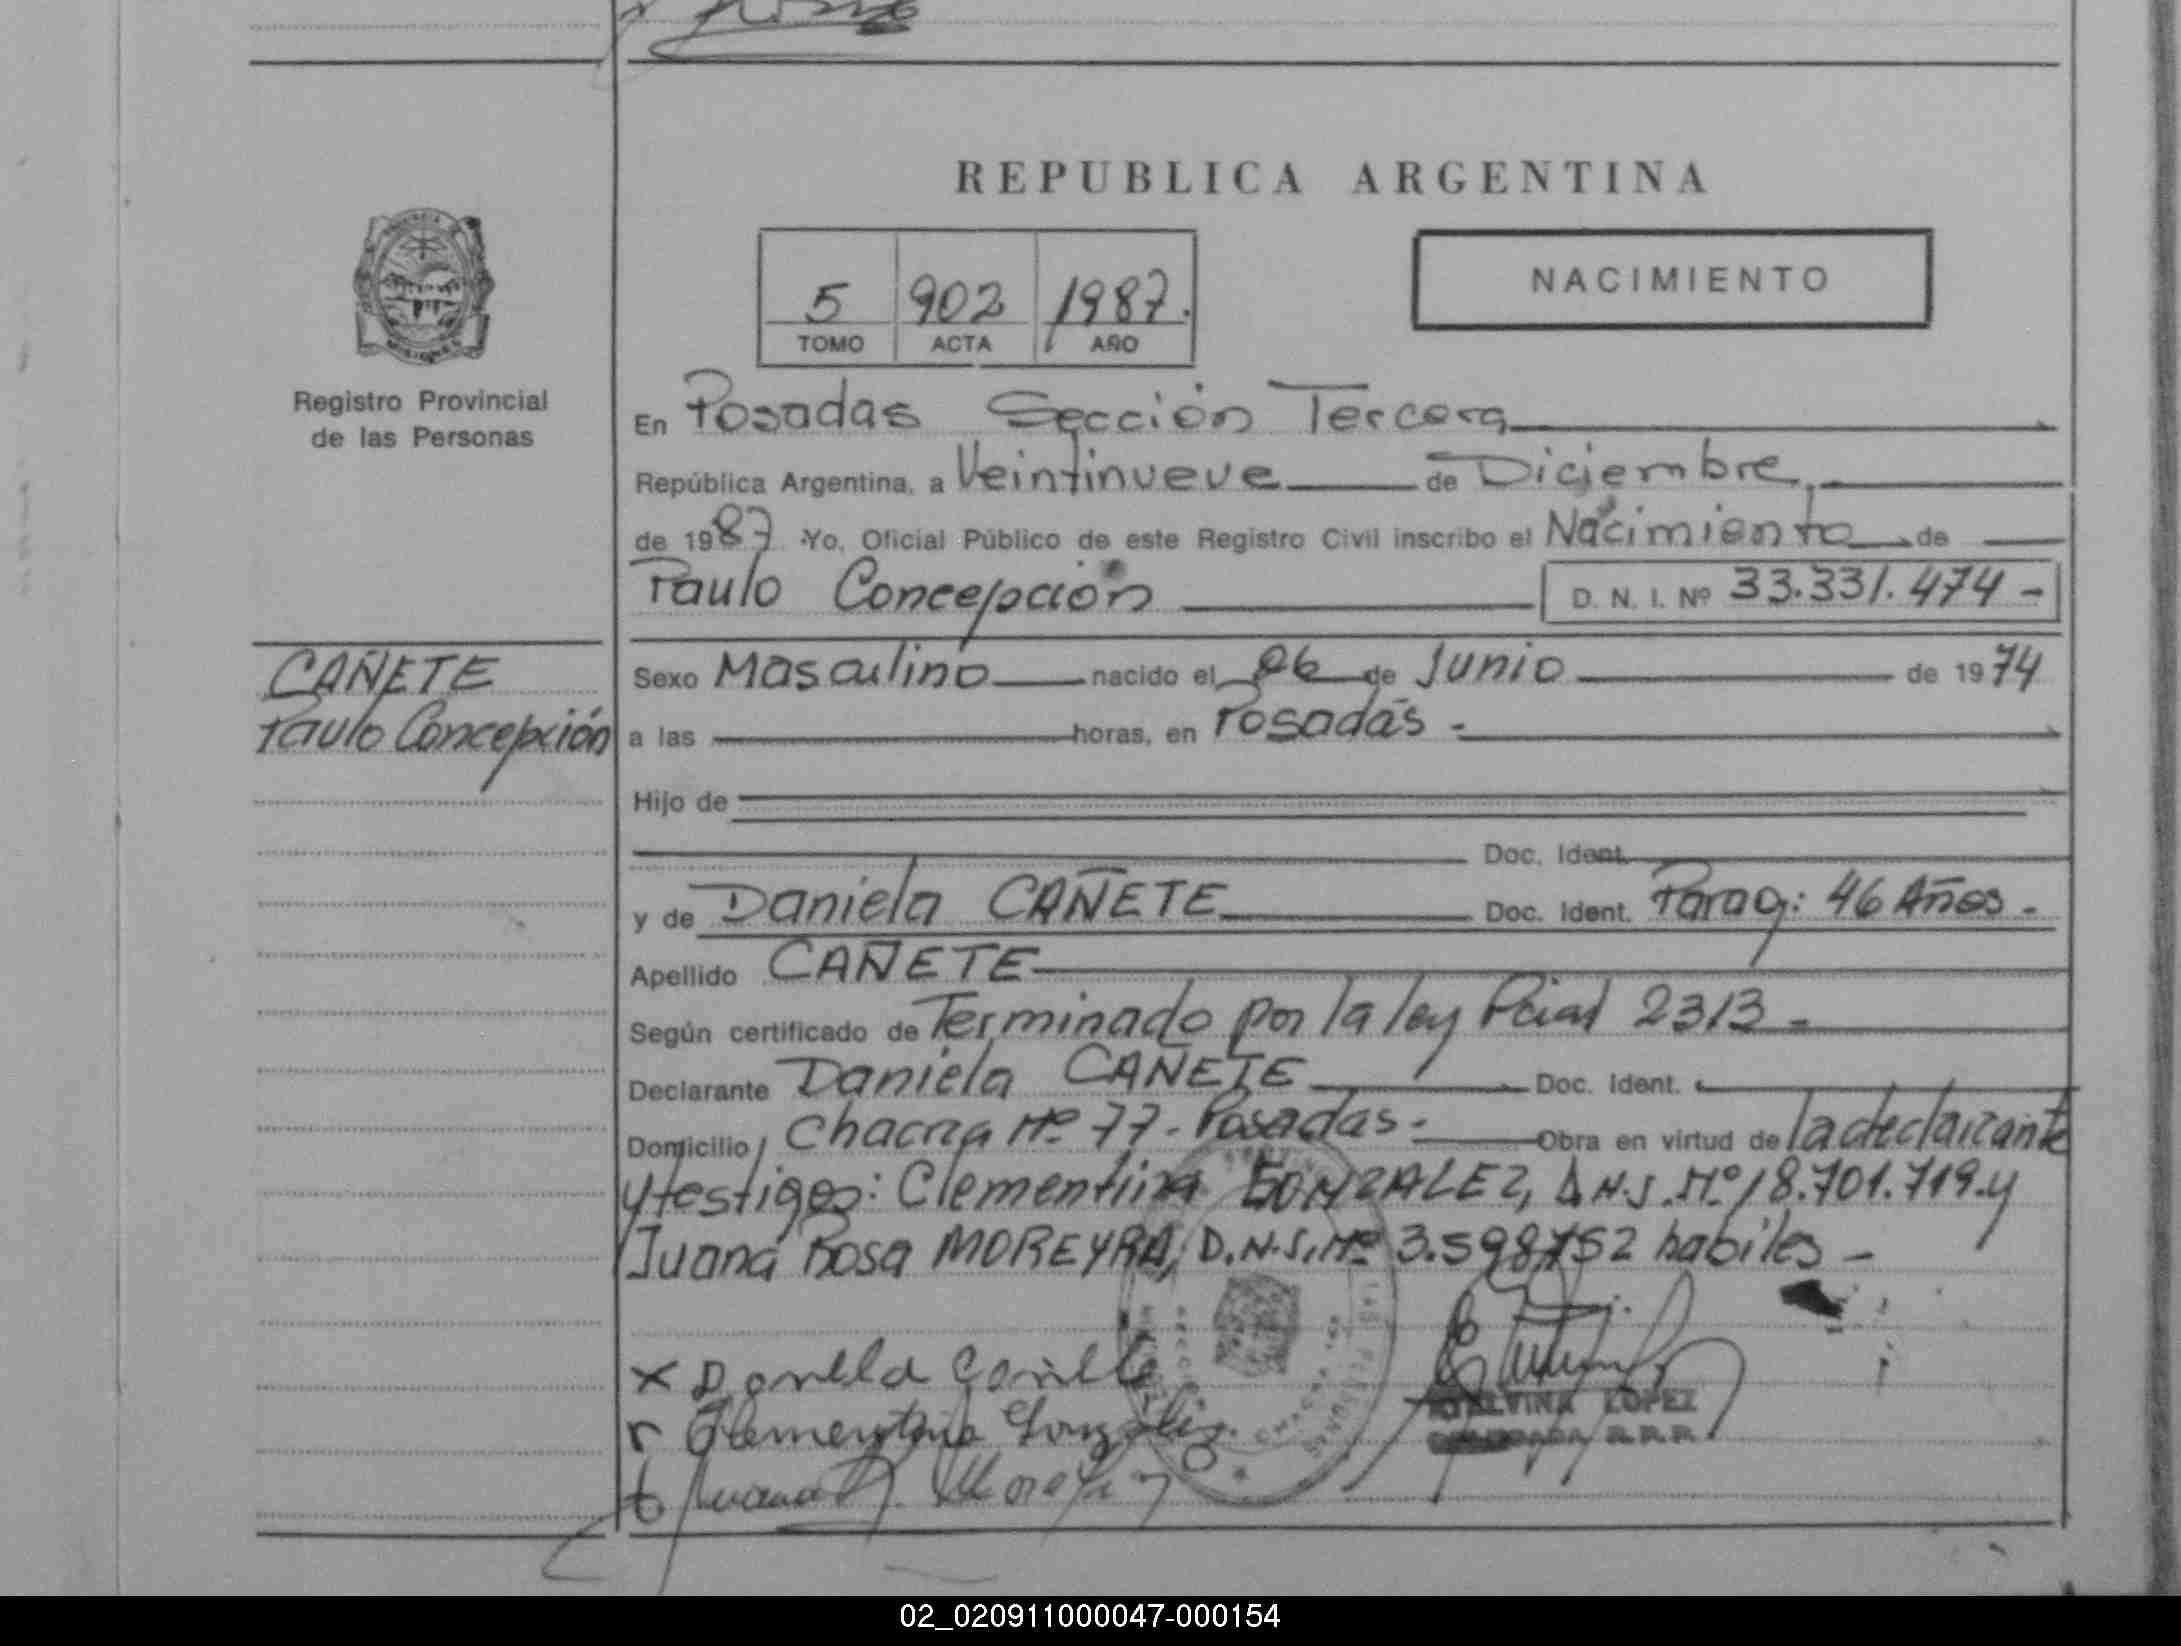 REPUBLICA ARGENTINA
NACIMIENTO
5 902 1987.
TOMO ACTA AÑO
MISIONES
Registro Provincial
de las Personas
En Posadas Sección Tercera
República Argentina, a Veintinueve de Diciembre,
de 1987 Yo, Oficial Público de este Registro Civil inscribo el Nacimiento de
Paulo Concepción D. N. I. Nº 33.331.474 -
CAÑETE
Paulo Concepción
Sexo Masculino nacido el 06 de Junio de 1974
a las horas, en Posadas -
Hijo de
Doc. Ident.
y de Daniela CAÑETE Doc. Ident. Parag: 46 Años -
Apellido CAÑETE
Según certificado de Terminado por la ley Pcial 2313 -
Declarante Daniela CAÑETE Doc. Ident.
Domicilio Chacra Nº 77 - Posadas - Obra en virtud de la declarante
y testigos: Clementina GONZALEZ, D.N.I. Nº 18.701.719 y
Juana Rosa MOREYRA, D.N.I. Nº 3.598.752 habiles -
LOPEZ
02_020911000047-000154